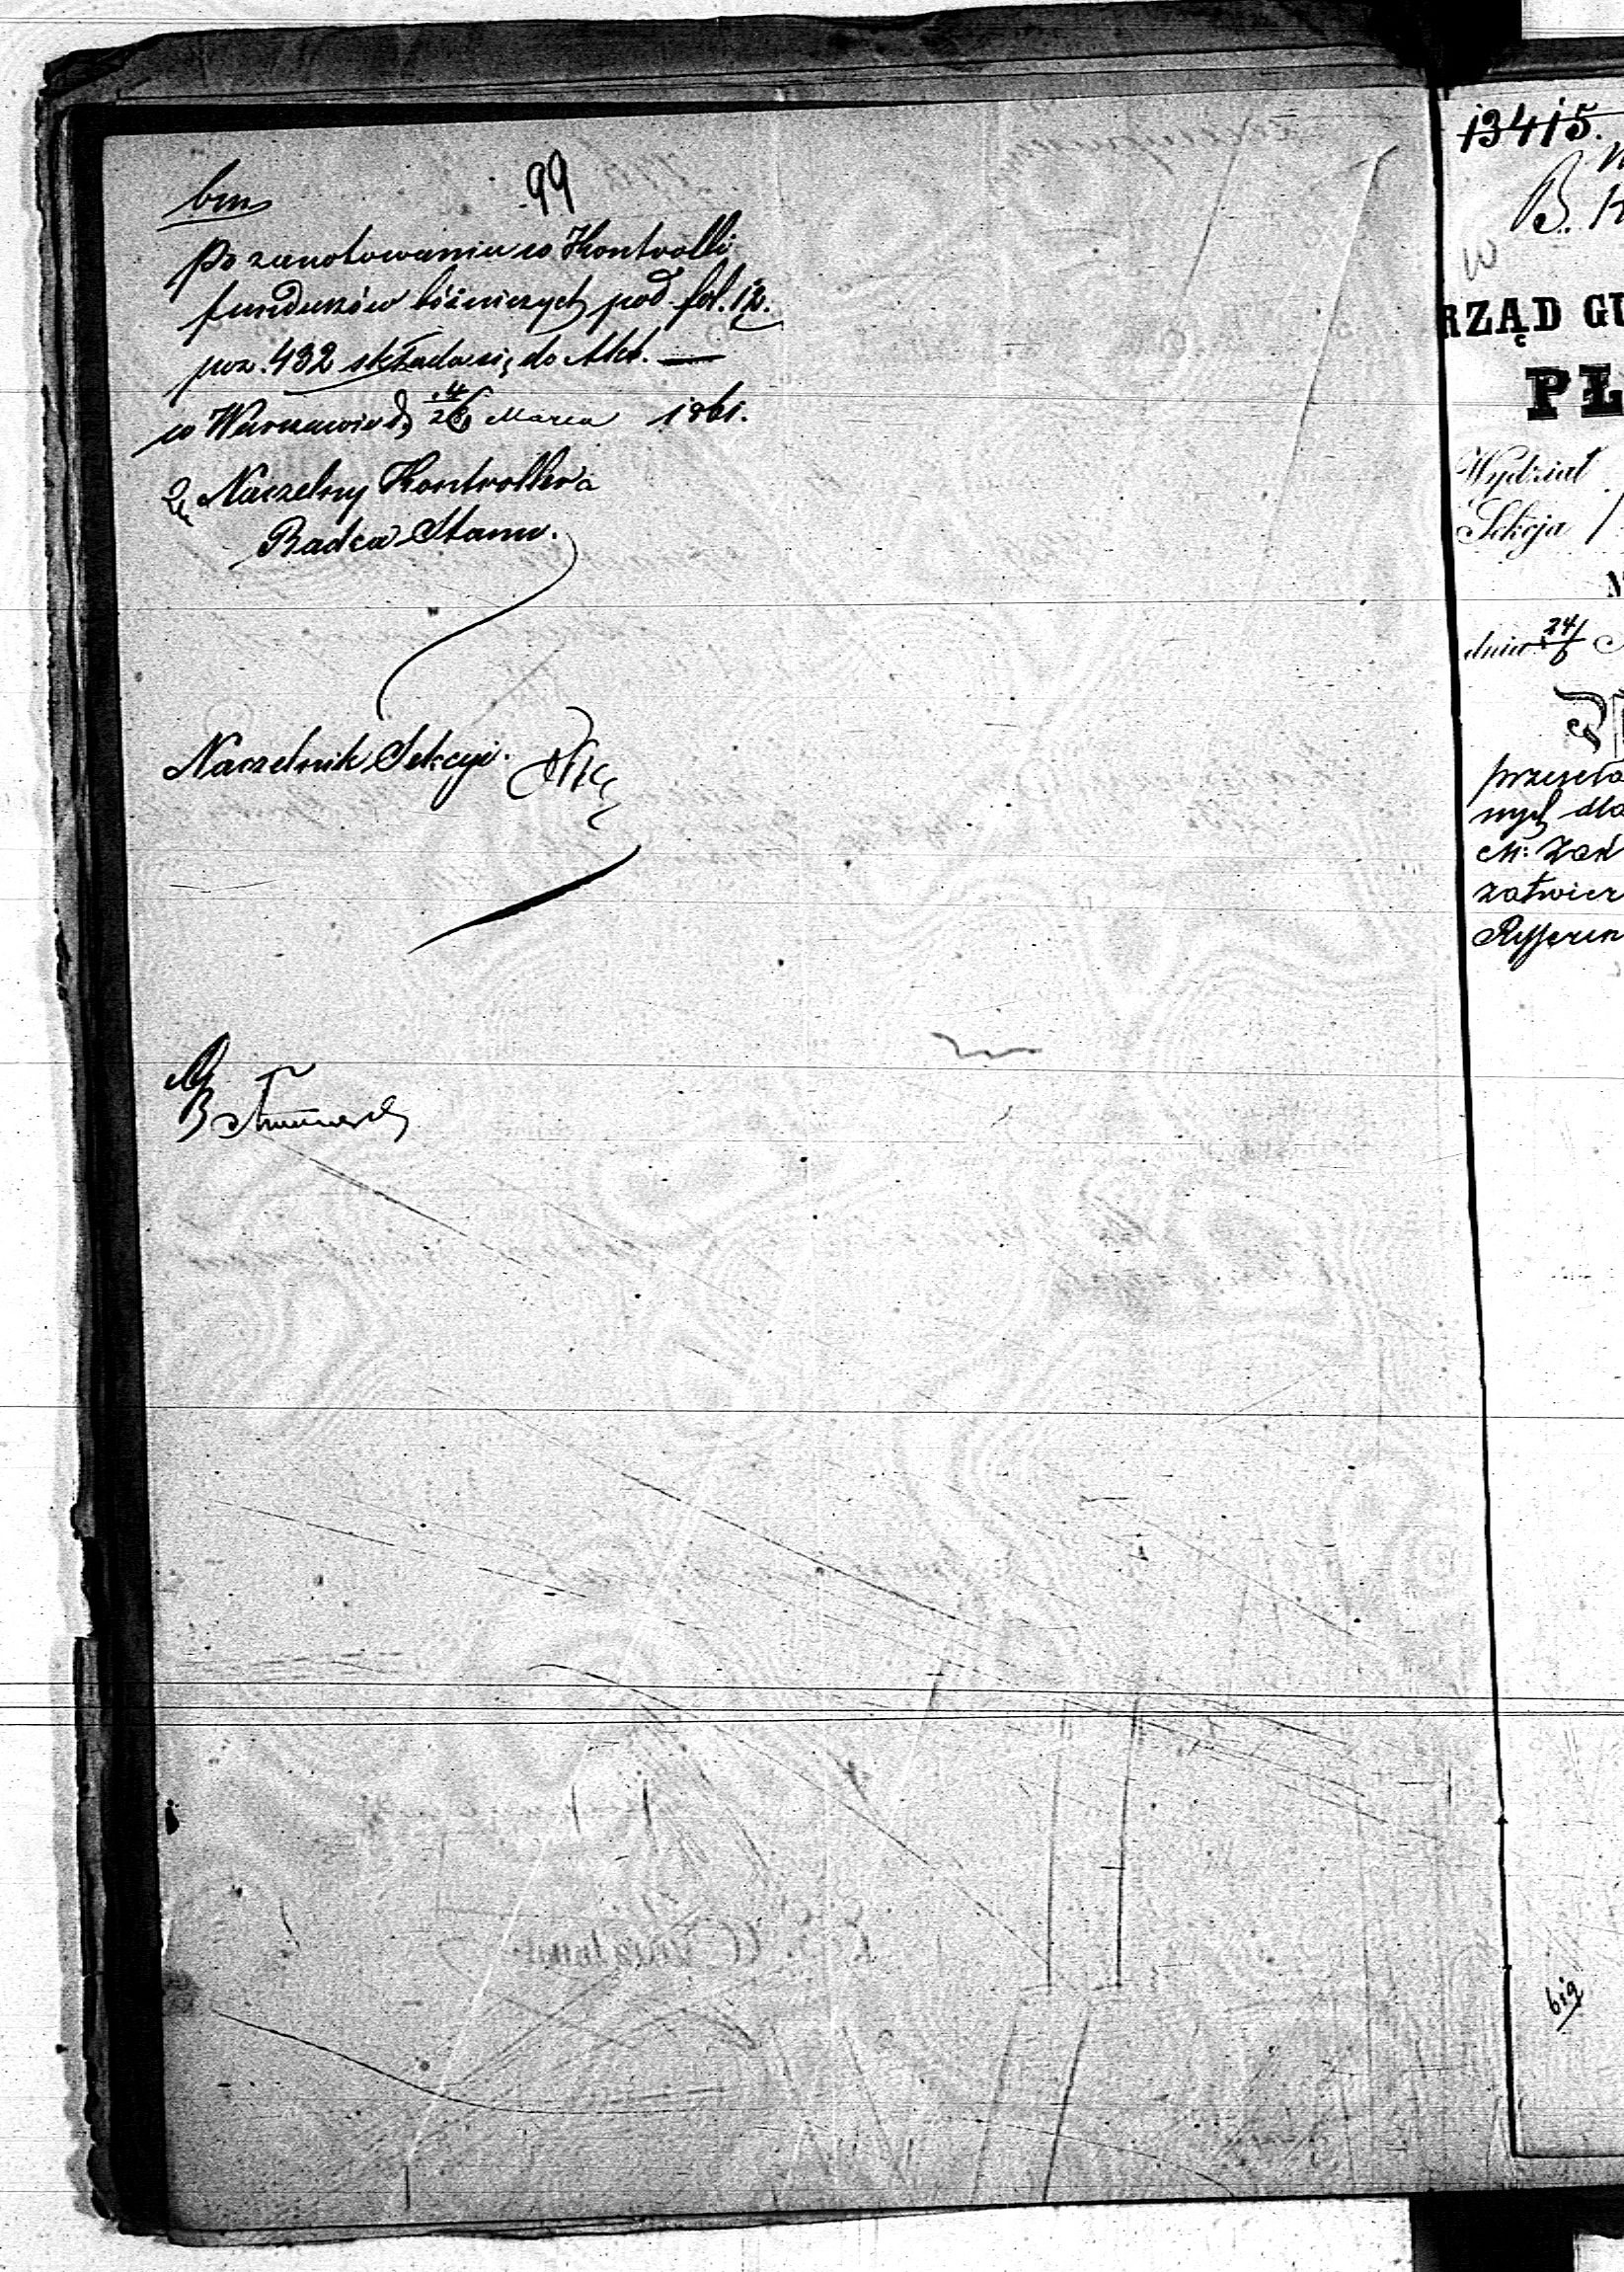 bm
99
Po zanotowaniu w Kontrolli
funduszów bóżniczych pod fol. 12.
poz. 432 składa się do Akt.
w Warszawie d. Marca 1861.
Naczelny Kontroller
Radca Stanu.
Naczelnik Sekcyi.
13415.
B.
W
RZĄD GU
PŁ
Wydział
Sekcja
N
dnia 24/6
przeseła
nych dla
zatwier
Refferen